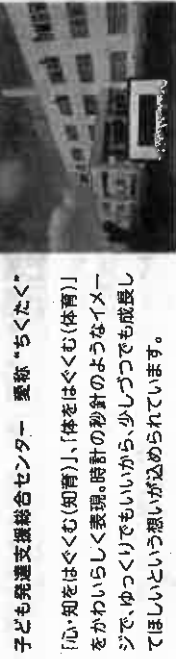 子ども発達支援総合センター 愛称“ちくたく”
「心・知をはぐくむ(知育)」、「体をはぐくむ(体育)」
をかわいらしく表現。時計の秒針のようなイメー
ジで、ゆっくりでもいいから、少しづつでも成長し
てほしいという想いが込められています。